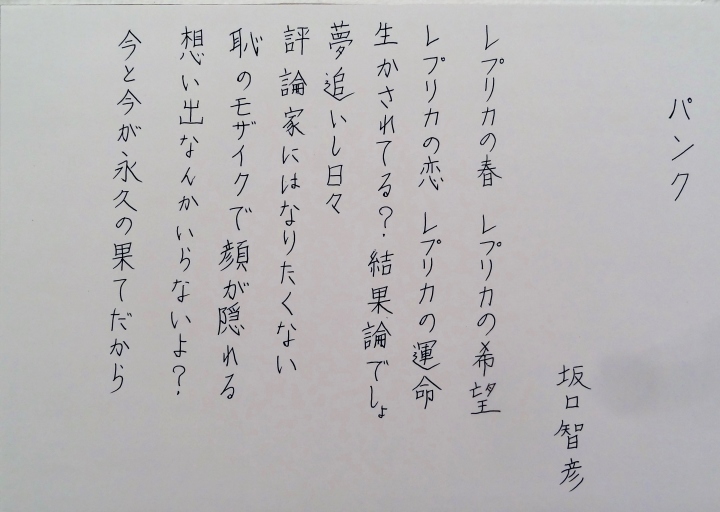 パンク
坂口智彦
レプリカの春　レプリカの希望
レプリカの恋　レプリカの運命
生かされてる？結果論でしょ
夢追いし日々
評論家にはなりたくない
恥のモザイクで顔が隠れる
想い出なんかいらないよ？
今と今が永久の果てだから